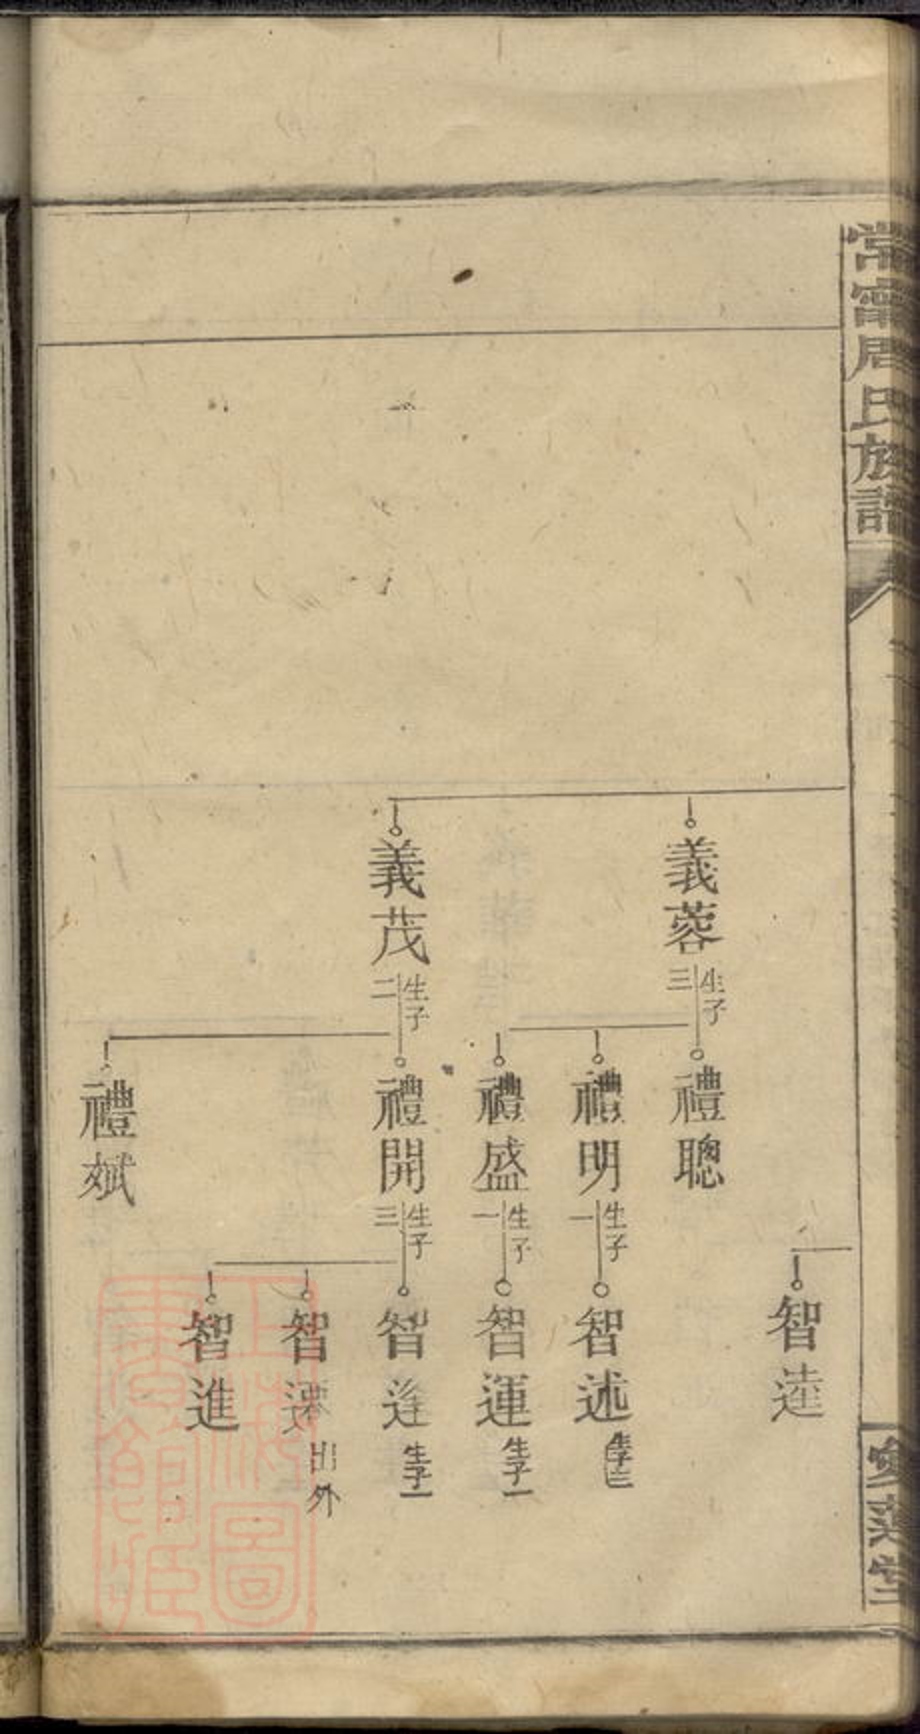 常甯周氏族譜
愛蓮堂
義蓉 生子三
義茂 生子二
禮聰
禮明 生子一
禮盛 生子一
禮開 生子三
禮斌
智逵
智述 生子三
智運 生子一
智逢 生子一
智 出外
智進
上海圖書館藏